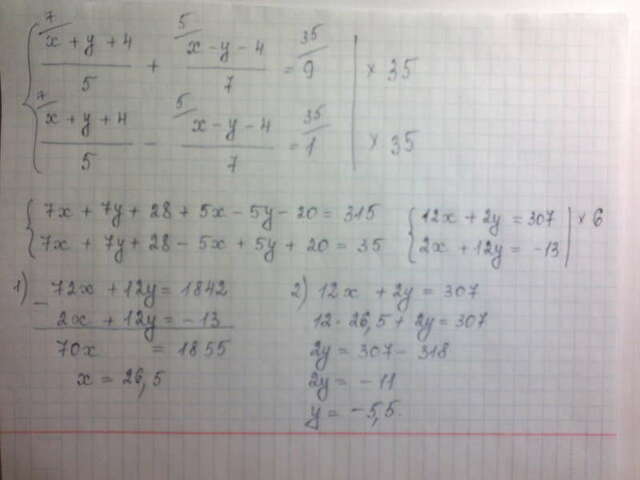 { ⁷/ (x + y + 4)/5 + ⁵/ (x - y - 4)/7 = ³⁵/ 9 | × 35
{ ⁷/ (x + y + 4)/5 - ⁵/ (x - y - 4)/7 = ³⁵/ 1 | × 35
{ 7x + 7y + 28 + 5x - 5y - 20 = 315 { 12x + 2y = 307 | × 6
{ 7x + 7y + 28 - 5x + 5y + 20 = 35 { 2x + 12y = -13 |
1) - 72x + 12y = 1842
2x + 12y = -13
70x = 1855
x = 26,5
2) 12x + 2y = 307
12 · 26,5 + 2y = 307
2y = 307 - 318
2y = -11
y = -5,5.